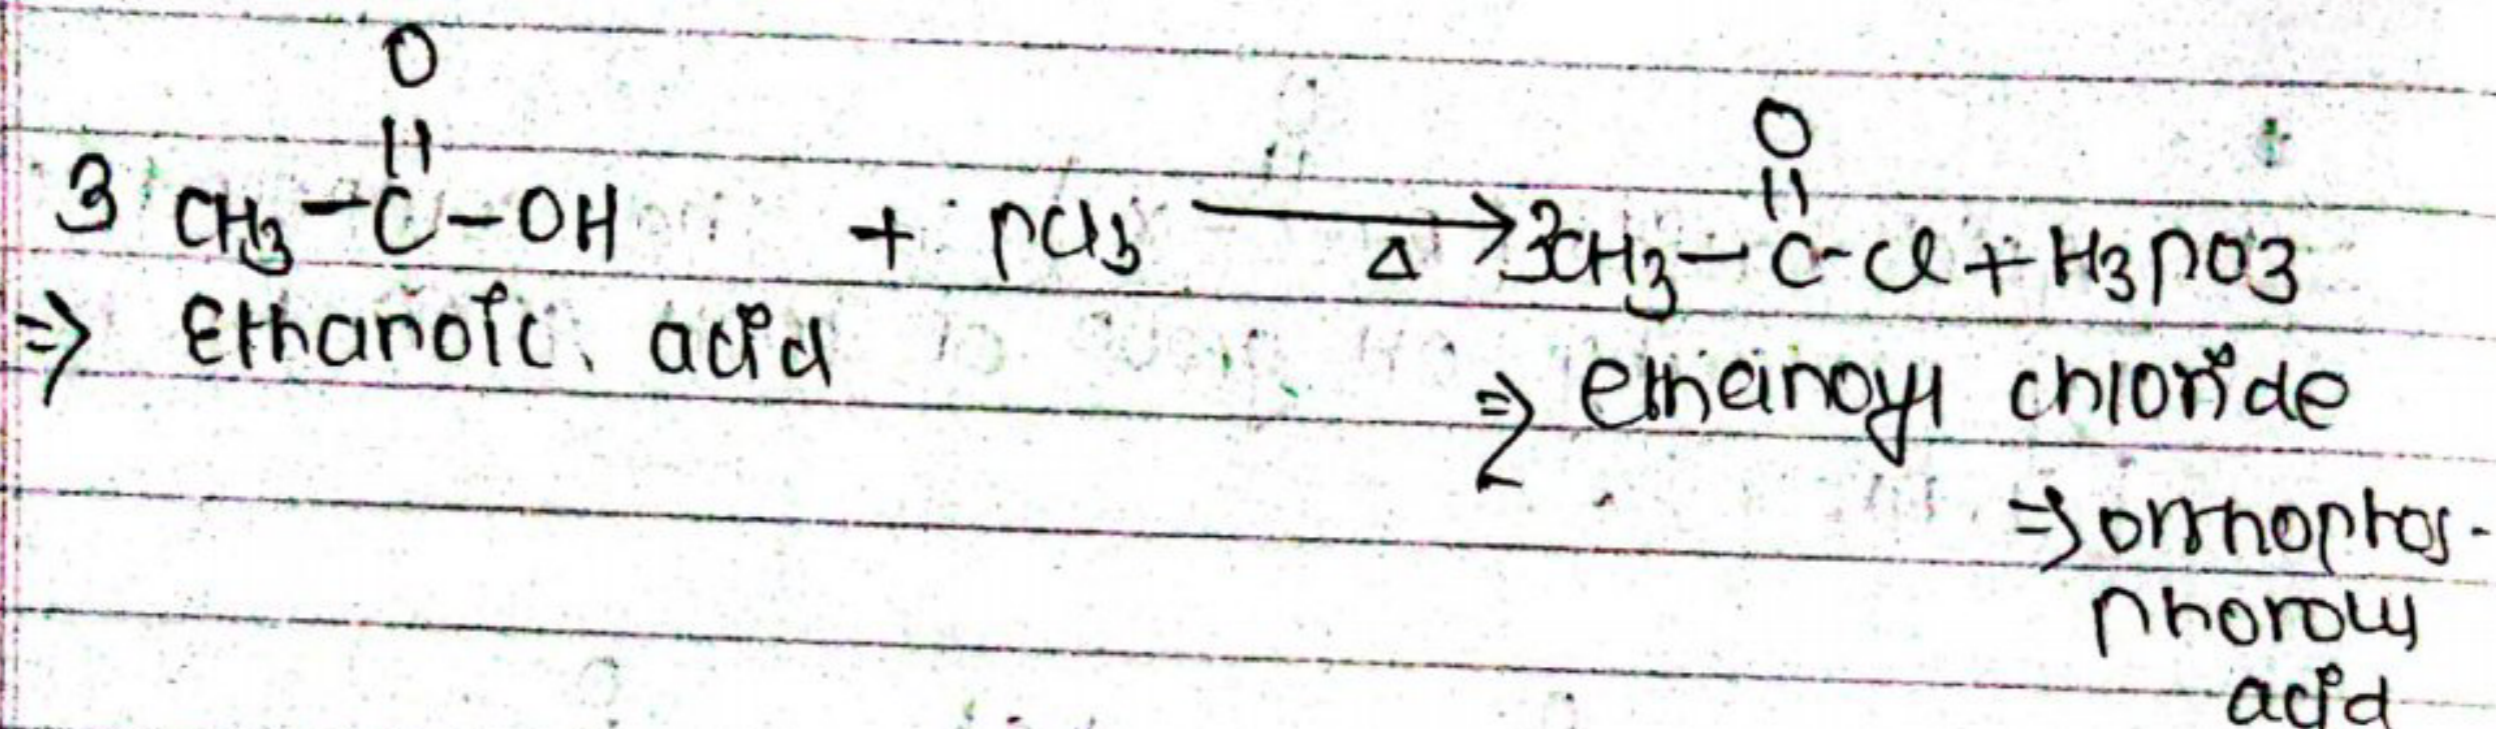 O O
|| ||
3 CH3-C-OH + PCl3 ⟶ 3CH3-C-Cl + H3PO3
Δ
⇒ Ethanoic acid
⇒ ethanoyl chloride
⇒ orthophos-
phorous
acid